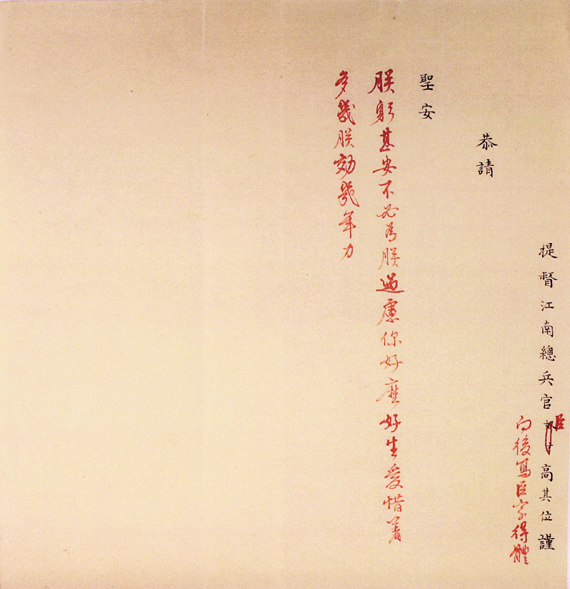 提督江南總兵官臣高其位謹
向後寫臣字得體
恭請
聖安
朕躬甚安不必為朕過慮你好麼好生愛惜着
多朕効幾年力